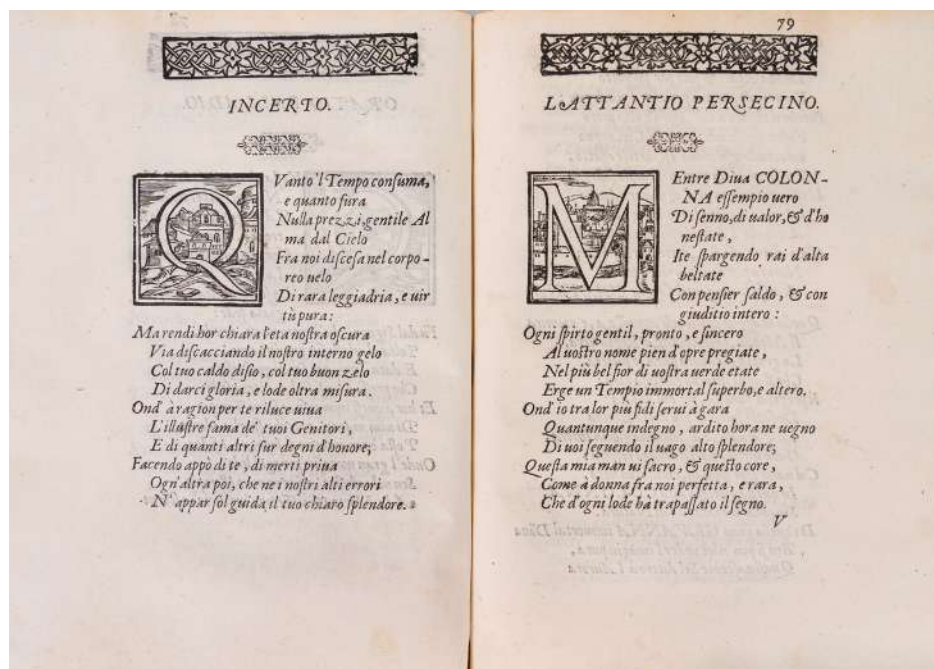 INCERTO.
QVanto'l Tempo consuma,
e quanto fura
Nulla prezzi, gentile Al
ma dal Cielo
Fra noi discesa nel corpo-
reo uelo
Di rara leggiadria, e uir
tù pura:
Ma rendi hor chiara l'eta nostra oscura
Via discacciando il nostro interno gelo
Col tuo caldo disio, col tuo buon zelo
Di darci gloria, e lode oltra misura.
Ond' à ragion per te riluce uiua
L'illustre fama de' tuoi Genitori,
E di quanti altri fur degni d'honore;
Facendo appò di te, di merti priua
Ogn'altra poi, che ne i nostri alti errori
N' appar sol guida il tuo chiaro splendore.
79
LATTANTIO PERSECINO.
MEntre Diua COLON-
NA essempio uero
Di senno, di ualor, & d'ho
nestate,
Ite spargendo rai d'alta
beltate
Con pensier saldo, & con
giuditio intero:
Ogni spirto gentil, pronto, e sincero
Al uostro nome pien d'opre pregiate,
Nel più bel fior di uostra uerde etate
Erge un Tempio immortal superbo, e altero.
Ond'io tra lor più fidi serui à gara
Quantunque indegno, ardito hora ne uegno
Di uoi seguendo il uago alto splendore;
Questa mia man ui sacro, & questo core,
Come à donna fra noi perfetta, e rara,
Che d'ogni lode hà trapassato il segno.
V